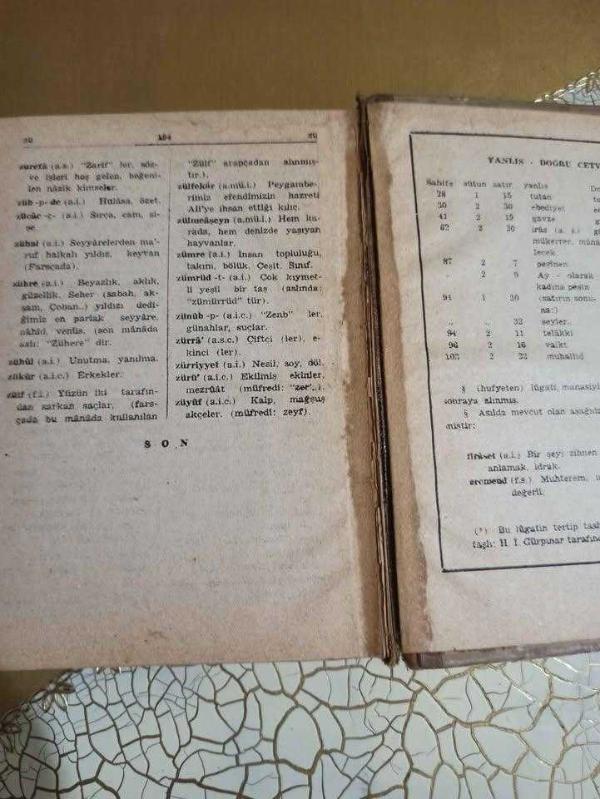 zü 104 zü
zurefâ (a.s.) "Zarif" ler, söz-
ve işleri hoş gelen, beğeni-
len nâzik kimseler.
züb-p-de (a.i.) Hulâsa, özet.
zücâc-ç- (a.i.) Sırça, cam, şi-
şe.
zühal (a.i.) Seyyârelerden ma'-
ruf halkalı yıldız, keyvan
(Farsçada).
zühre (a.i.) Beyazlık, aklık,
güzellik. Seher (sabah, ak-
şam, Çoban..) yıldızı dedi-
ğimiz en parlak seyyâre,
nâhid, venüs, (son mânâda
aslı: "Zühere" dir.
zühûl (a.i.) Unutma, yanılma.
zükûr (a.i.c.) Erkekler.
zülf (f.i.) Yüzün iki tarafın-
dan sarkan saçlar, (fars-
çada bu mânâda kullanılan
"Zülf" arapçadan alınmış-
tır.).
zülfekâr (a.mü.i.) Peygambe-
rimiz efendimizin hazreti
Ali'ye ihsan ettiği kılıç.
zülmeâşeyn (a.mü.i.) Hem ka-
rada, hem denizde yaşıyan
hayvanlar.
zümre (a.i.) İnsan topluluğu,
takım, bölük, Çeşit, Sınıf.
zümrüd -t- (a.i.) Çok kıymet-
li yeşil bir taş (aslında:
"zümürrüd" tür).
zünüb -p- (a.i.c.) "Zenb" ler,
günahlar, suçlar.
zürrâ' (a.s.c.) Çiftçi (ler), e-
kinci (ler).
zürriyyet (a.i.) Nesil, soy, döl.
zürû' (a.i.c.) Ekilmiş ekinler,
mezrûât (müfredi: "zer'..).
züyûf (a.i.c.) Kalp, mağşuş
akçeler. (müfredi: zeyf).
S O N
YANLIŞ - DOĞRU CETV
Sahife sütun satır yanlış
28 1 15 tutan
30 2 30 ebediyet
41 2 19
62 2 36
mükerrer,
lecek.
87 2 7
2 9 Ay - olarak
kadına peşin
94 1 20 (satırın sonu-
na:)
" " 32 şeyler..
94 2 11 telâkki
96 2 16 vaikt
103 2 22 muhallid
§ (hufyeten) lûgati, manasiyl
sonraya alınmış.
§ Aslında mevcut olan aşağıda
mıştır:
firâset (a.i.) Bir şeyi zihnen
anlamak, idrâk.
ercmend (f.s.) Muhterem,
değerli.
(*) Bu lûgatın tertip tash
taşlı: H. İ. Gürpınar tarafınd